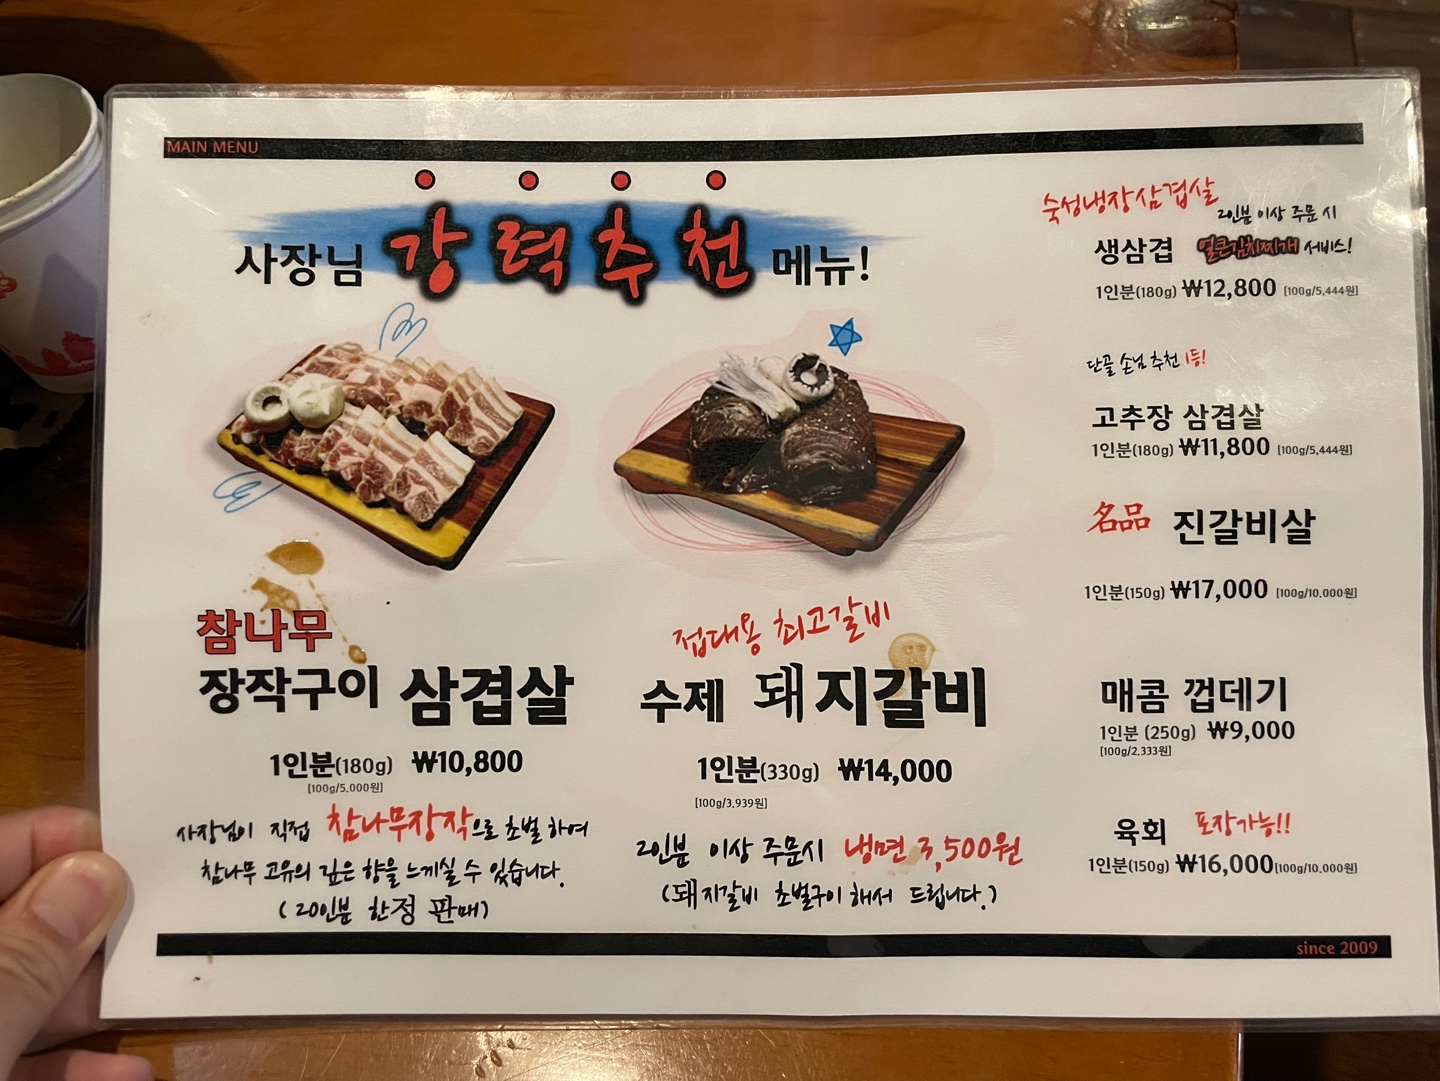 MAIN MENU
사장님 강력추천 메뉴!
참나무
장작구이 삼겹살
1인분(180g) ₩10,800
[100g/5.000원]
사장님이 직접 참나무장작으로 초벌 하여
참나무 고유의 깊은 향을 느끼실 수 있습니다.
(20인분 한정 판매)
접대용 최고갈비
수제 돼지갈비
1인분(330g) ₩14,000
[100g/3,939원]
2인분 이상 주문시 냉면 3,500원
(돼지갈비 초벌구이 해서 드립니다.)
숙성냉장삼겹살
2인분 이상 주문 시
생삼겹 얼큰김치찌개 서비스!
1인분(180g) ₩12,800 [100g/5,444원]
단골 손님 추천 1등!
고추장 삼겹살
1인분(180g) ₩11,800 [100g/5,444원]
名品 진갈비살
1인분(150g) ₩17,000 [100g/10.000원]
매콤 껍데기
1인분 (250g) ₩9,000
[100g/2.333원]
육회 포장가능!!
1인분(150g) ₩16,000 [100g/10.000원]
since 2009